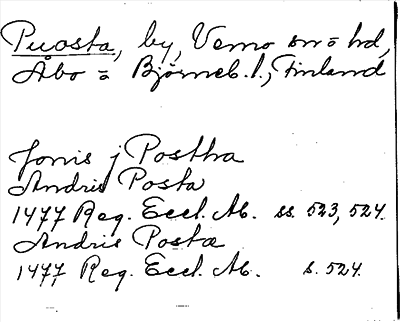 Puosta, by, Vemo sn = hd,
Åbo = Björneb. l., Finland
Jonis j Postha
Andris Posta
1477 Reg. Eccl. Ab. ss. 523, 524.
Andris Postæ
1477 Reg. Eccl. Ab. s. 524.